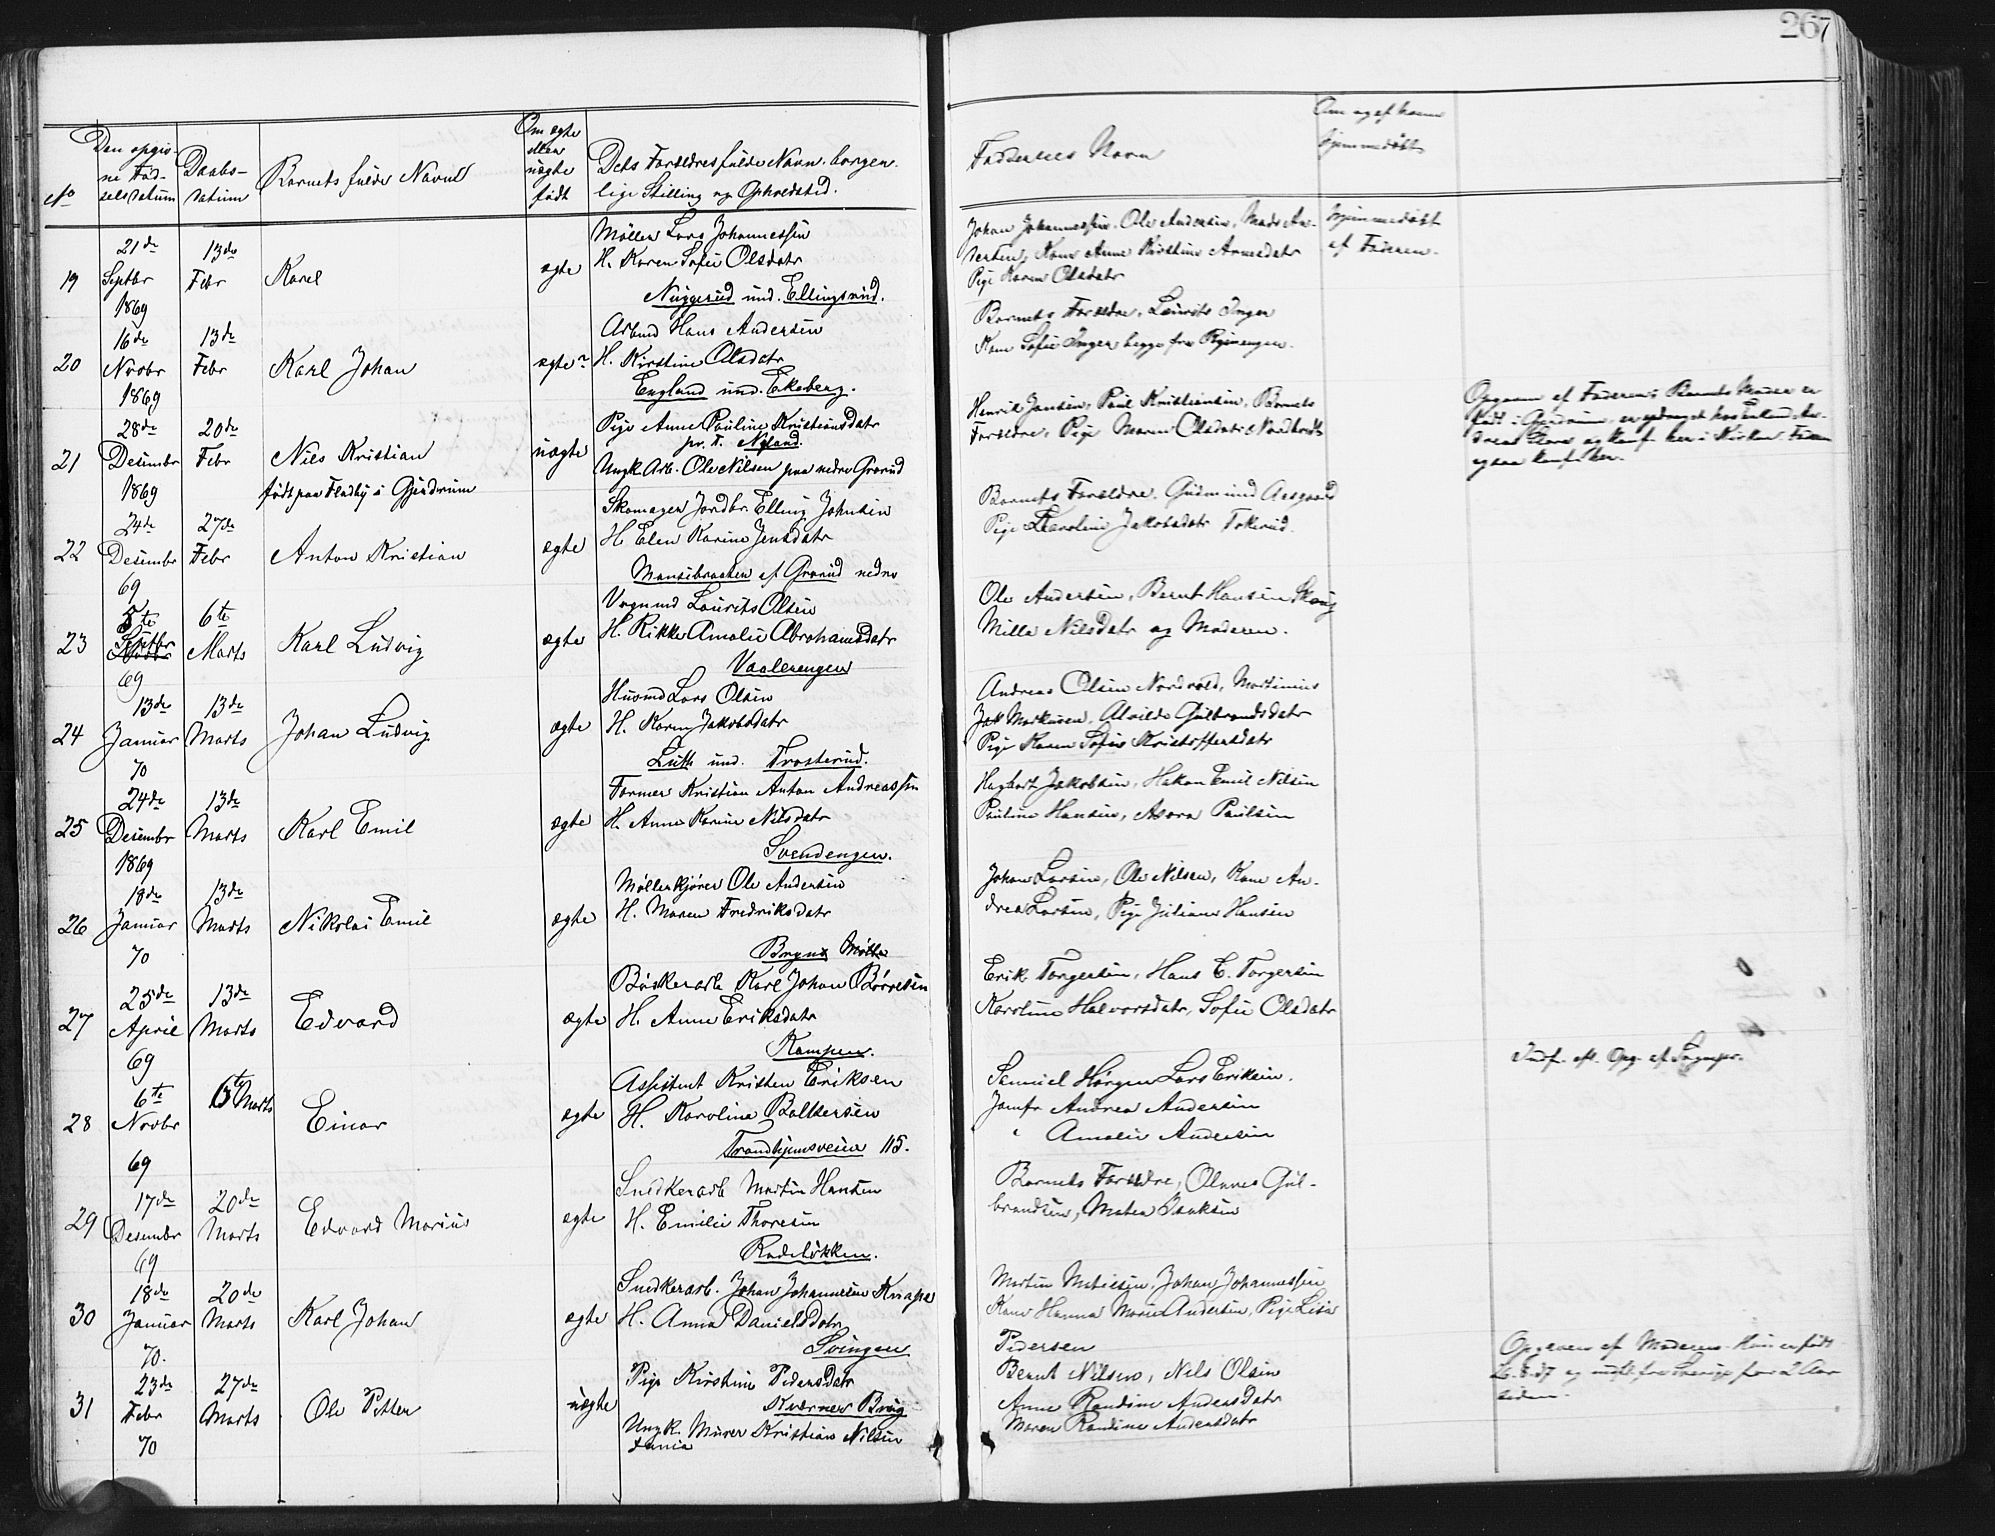 267
No
Den opgiv-
ne Fød-
selsdatum
Daabs-
datum
Barnets fulde Navn
Om ægte
eller
uægte
født
Dets Forældres fulde Navn, borger-
lige Stilling og Opholdsted.
Faddernes Navn
Om og af hvem
hjemmedøbt
19
21de
Septbr
1869
13de
Febr
Karl
ægte
Møller Lars Johannessen
H. Karen Sofie Olsdatr
und. Ellingsrud.
Johan Johannessen, Ole Andersen, Mads An-
dersen, Kone Anne Kirstine Arnesdatr
Pige Karen Olsdatr
Hjemmedøbt
af Faderen.
20
16de
Novbr
1869
13de
Febr
Karl Johan
ægte
Arbmd Hans Andersen
H. Kirstine Olsdatr
England und. Ekeberg.
Barnets Forældre, Laurits Inger
Kone Sofie Inger begge fra
21
28de
Desembr
1869
20de
Febr
Nils Kristian
født paa Fladby i Gjerdrum
uægte
Pige Anne Pauline Kristiansdatr
pr. T. Nyland.
Ungk. Arb. Ole Nilsen paa nedre Grorud
Henrik Jansen, Paul Kristiansen, Barnets
Forældre, Pige Maren Olsdatr
Opgaven af Faderen; Barnets Moder er
født i Gjerdrum,
22
24de
Desembr
69
27de
Febr
Anton Kristian
ægte
Skomager Jordbr. Elling Johnsen
H. Elen Karine Jensdatr
Mansebraaten af Grorud nedre
Barnets Forældre, Gudmund Aasgaard
Pige Karoline Jakobsdatr Tokerud.
23
5te
Septbr
69
6te
Marts
Karl Ludvig
ægte
Vognmd Laurits Olsen
H. Rikke Amalie Abrahamsdatr
Vaalerengen
Ole Andersen, Bernt Hansen Skoug
Mille Nilsdatr og Moderen.
24
13de
Januar
70
13de
Marts
Johan Ludvig
ægte
Husmd Lars Olsen
H. Karen Jakobsdatr
und. Trosterud.
Andreas Olsen Nordvold, Martinius
Markusen, Alvilde Gulbrandsdatr
Pige Karen Sofie Kristoffersdatr
25
24de
Desembr
1869
13de
Marts
Karl Emil
ægte
Former Kristian Anton Andreassen
H. Anne Karine Nilsdatr
Svendengen.
Hagbart Jakobsen, Hakon Emil Nilsen
Pauline Hansen, Asora Paulsen
26
18de
Januar
70
13de
Marts
Nikolai Emil
ægte
Møllerkjører Ole Andersen
H. Maren Fredriksdatr
Bryns Mølle
Johan Larsen, Ole Nilsen, Kone An-
drea Larsen, Pige Juliane Hansen
27
25de
April
69
13de
Marts
Edvard
ægte
Karl Johan Børresen
H. Anne Eriksdatr
Kampen.
Erik Torgersen, Hans E. Torgersen
Karoline Halvorsdatr, Sofie Olsdatr
28
6te
Novbr
69
6te Marts
Einar
ægte
Assistent Kristen Eriksen
H. Karoline Baltersen
Trondhjemsveien 115.
Samuel Lars Eriksen.
Jomfr Andrea Andersen
" Amalie Andersen
Indf. eft. Opg. af Sognepr.
29
17de
Desembr
69
20de
Marts
Edvard Marius
ægte
Snedkerarb Martin Hansen
H. Emilie Thoresen
Rodeløkken.
Barnets Forældre, Olaves Gul-
brandsen, Matea Isaksen
30
18de
Januar
70.
20de
Marts
Karl Johan
ægte
Snedkerarb. Johan Johannesen Knapa
H. Anna Danielsdatr
Svingen
Martin Matiesen, Johan Johannessen
Kone Hanna Marie Andersen, Pige Lisa
Pedersen
31
23de
Febr
70
27de
Marts
Ole Petter
uægte
Pige Kirstine Pedersdatr
Kværner Brug
Ungk. Murer Kristian Nilsen
Bernt Nilsen, Nils Olsen
Anne Randine Andersdatr
Maren Randine Andersdatr
Opgaven af Moderen. Hun er født
fra Sverige for 2 Aar
siden.